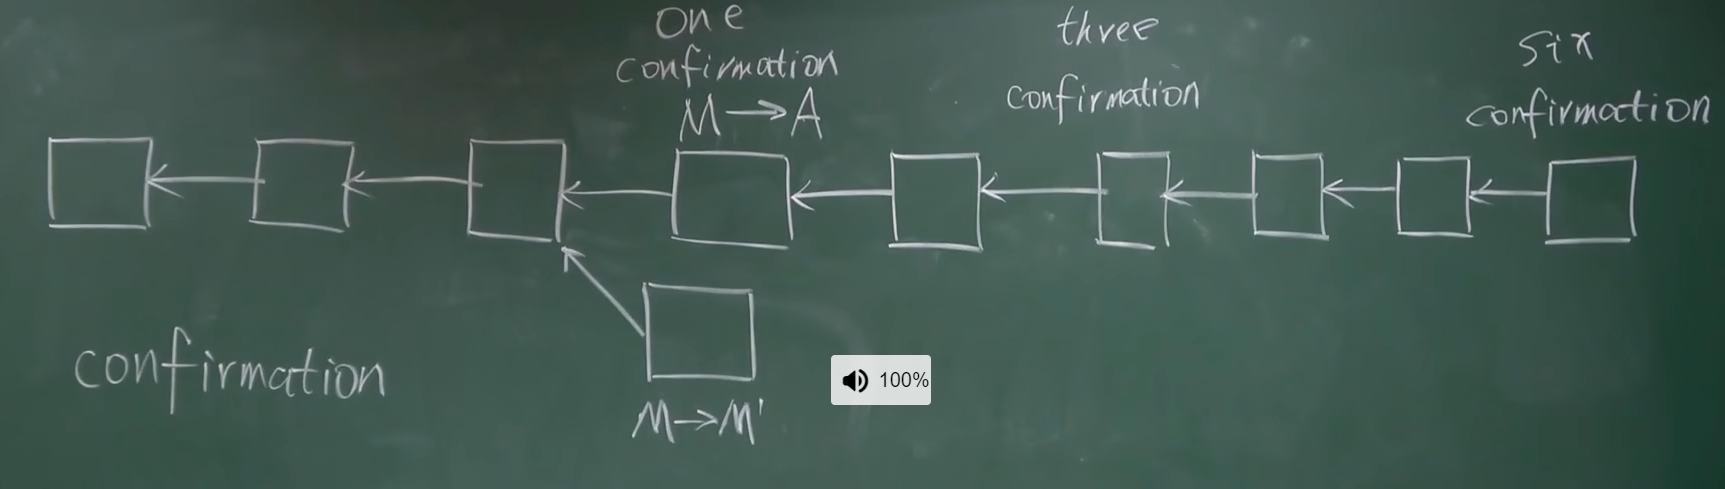 one
confirmation
M → A
three
confirmation
six
confirmation
confirmation
M → M'
100%